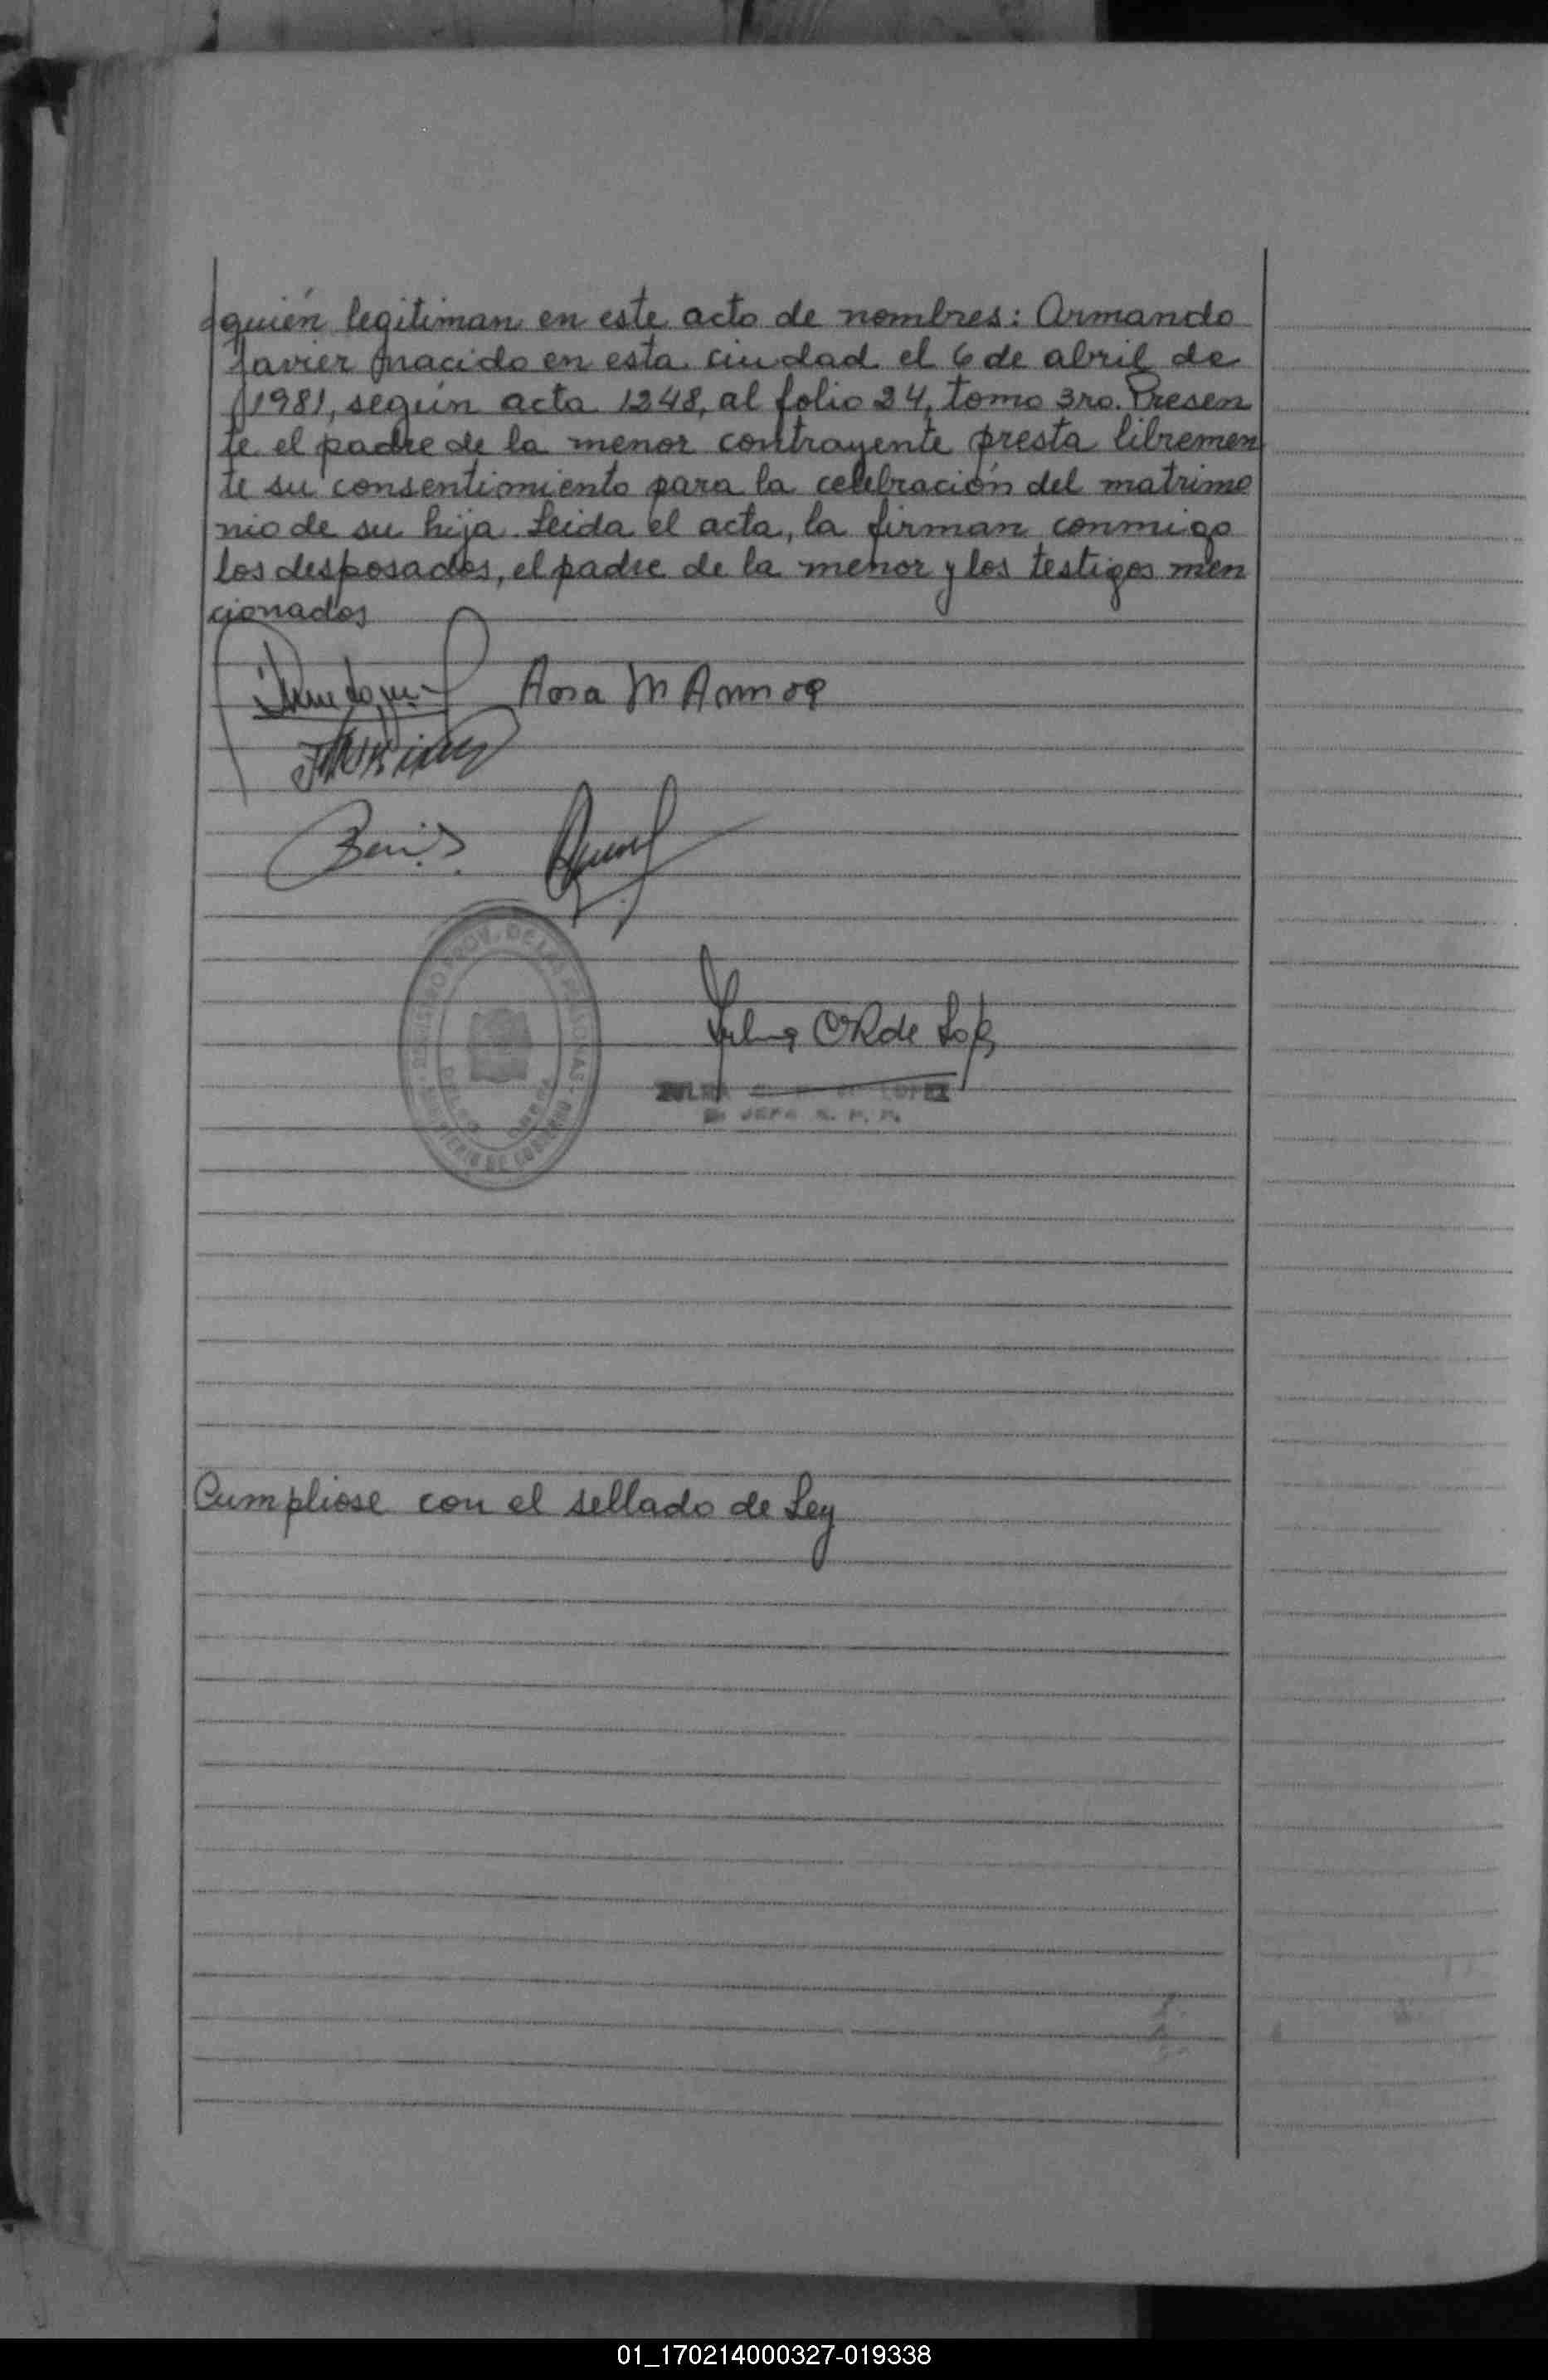 quién legitiman en este acto de nombres: Armando
Javier nacido en esta ciudad el 6 de abril de
1981, según acta 1248, al folio 24, tomo 3ro. Presen
te el padre de la menor contrayente presta libremen
te su consentimiento para la celebración del matrimo
nio de su hija. Leida el acta, la firman conmigo
los desposados, el padre de la menor y los testigos men
cionados
Rosa M
REGISTRO PROV. DE LAS PERSONAS
MINISTERIO DE GOBIERNO
de Lopez
ZULMA LOPEZ
JEFA
Cumpliose con el sellado de Ley
01_170214000327-019338